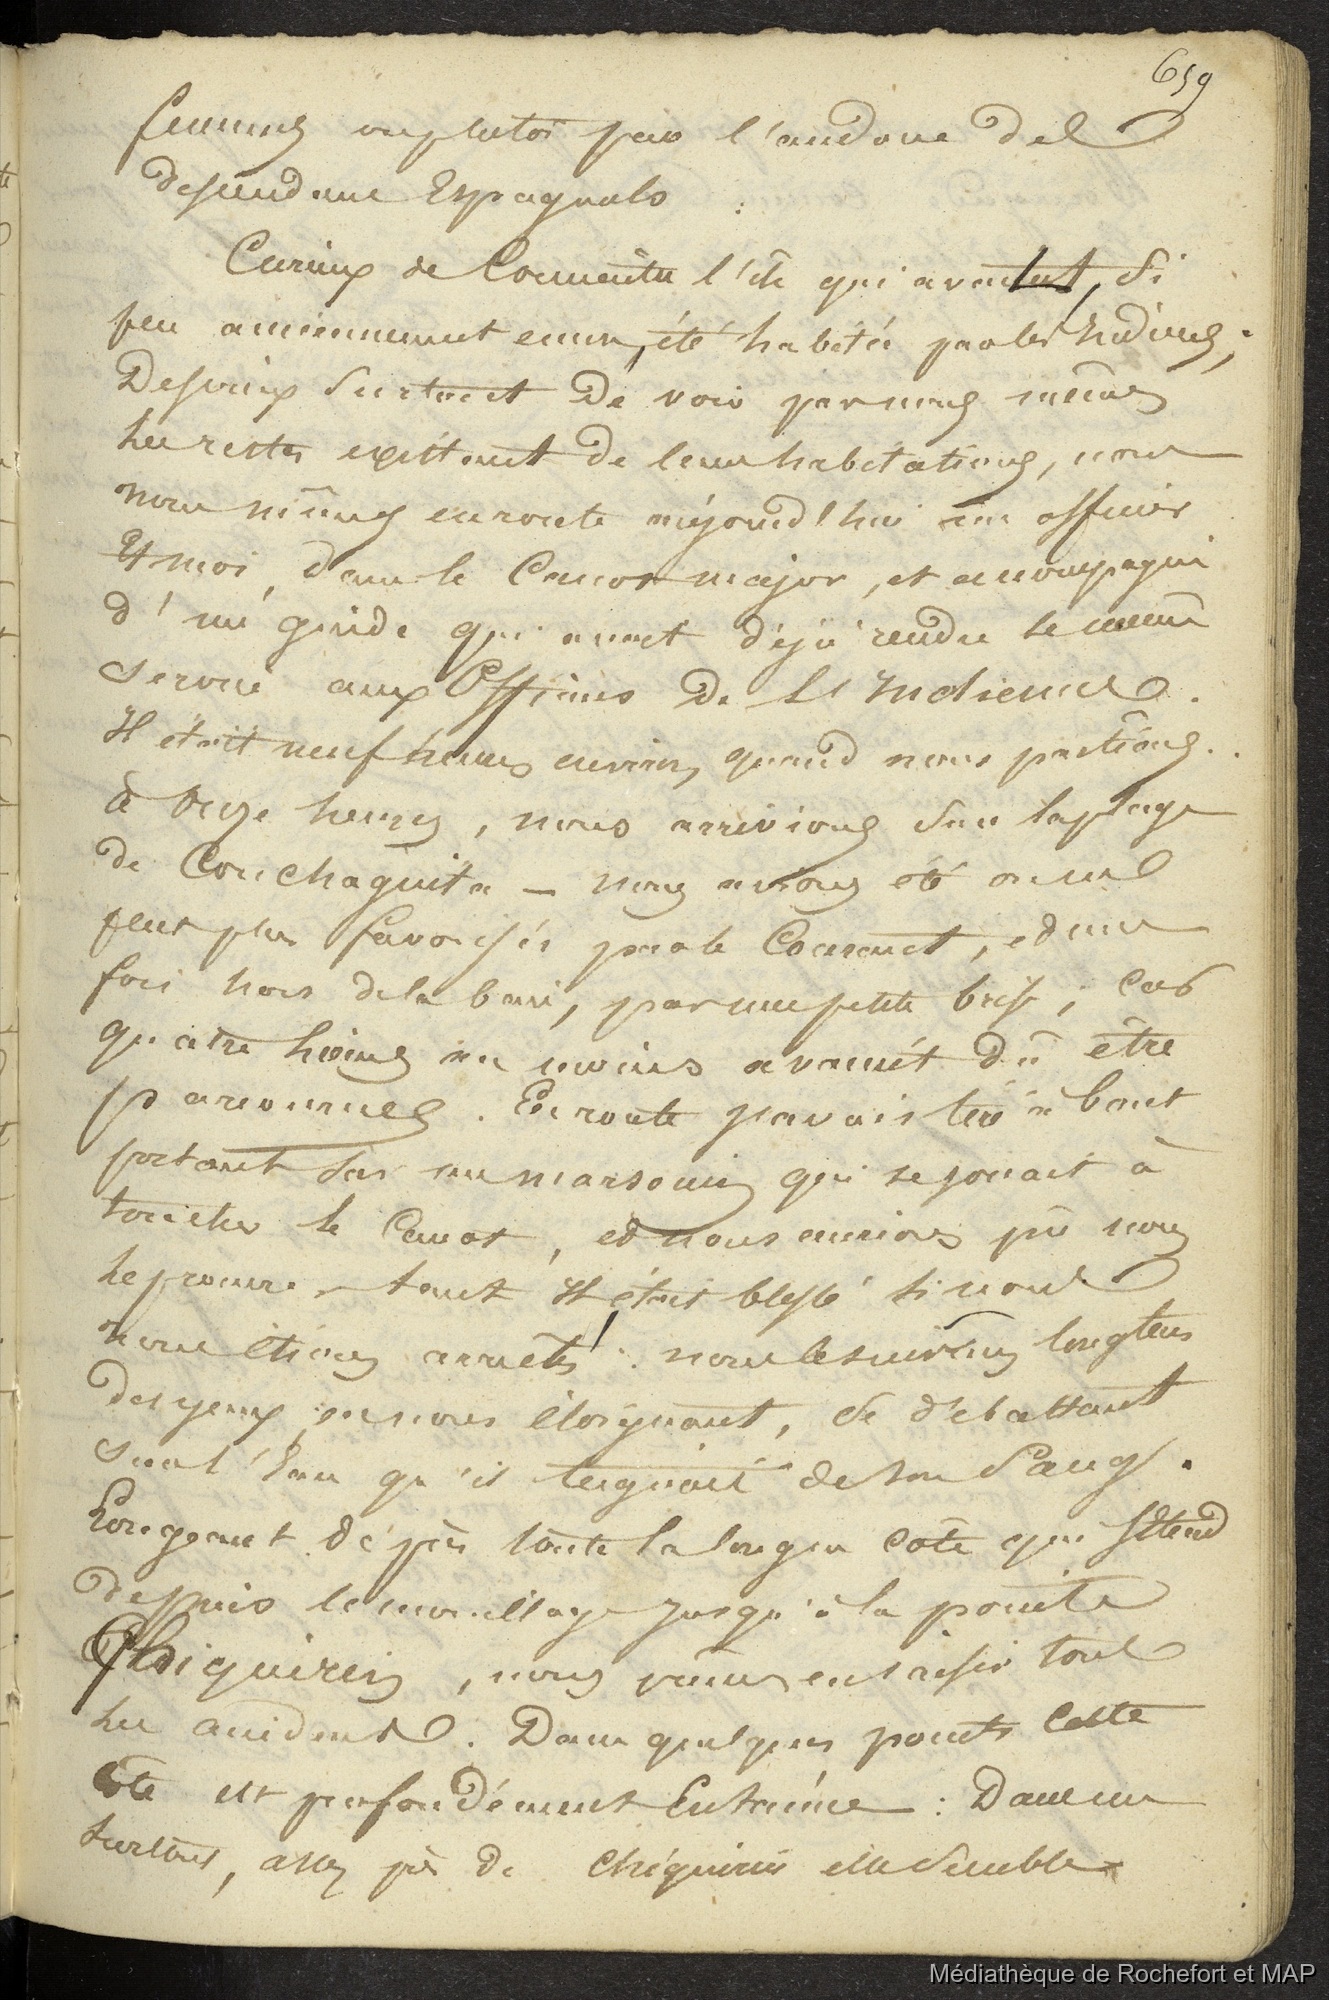 659
femmes ou plutôt par l'audace des
descendans Espagnols.
Curieux de Connaitre l'île qui avait, Si
peu anciennement encore, été habitée par les Indiens,
Désireux Surtout De voir par nous mêmes
les restes existant De leurs habitations, nous
nous mîmes en route aujourd'hui un officier
Et moi, dans le Canot major, et accompagné
d'un guide qui avait déjà rendu le même
service aux Officiers De L'Indienne.
Il était neuf heures environ, quand nous partîmes.
à Onze heures, nous arrivions Sur la plage
de Conchaguita — nous avions été on ne
peut plus favorisés par le Courant, et une
fois hors de la baie, par une petite brise; car
quatre lieues au moins avaient Dû être
parcourues. En route j'avais tiré à bout
portant Sur un marsouin qui se jouait à
toucher le Canot, et nous aurions pu nous
le procurer tant Il était blessé si nous
nous étions arrêtés: nous le suivîmes longtems
des yeux, en nous éloignant, Se débattant
Sur l'Eau qu'il teignait de son Sang.
Longeant De près toute la longue côte qui S'étend
depuis le mouillage jusqu'à la pointe
Chiquirin, nous pûmes en saisir tous
les accidents. Dans quelques points Cette
côte est profondément : Dans un
surtout, assez près de Chiquirin elle Semble
Médiathèque de Rochefort et MAP